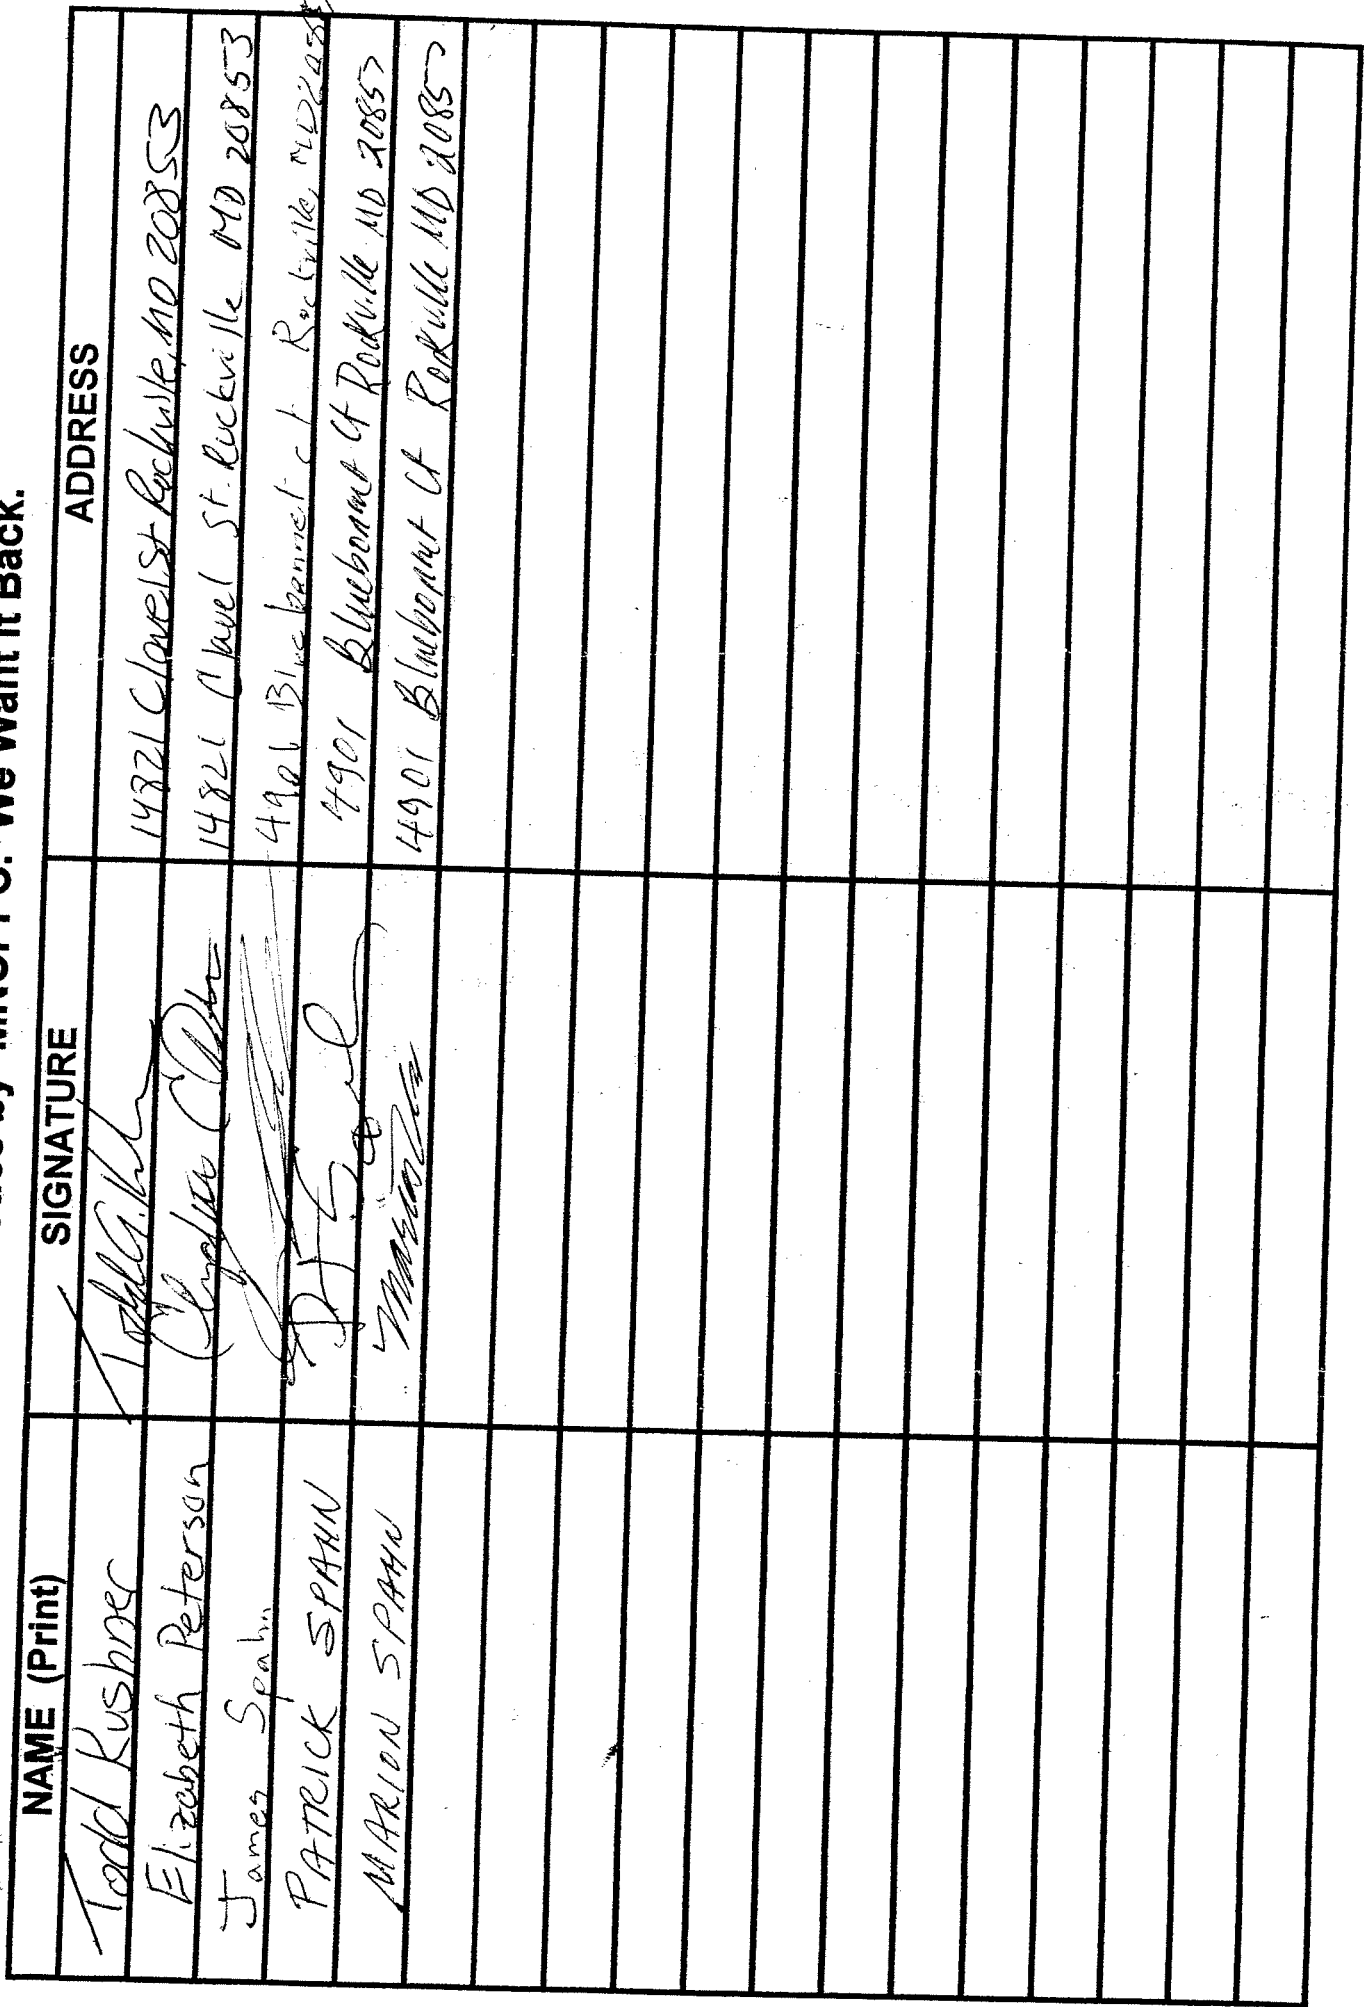 by MNCPPC. We Want It Back.
NAME (Print) SIGNATURE ADDRESS
Todd Kushner 14821 Clavel St Rockville, MD 20853
Elizabeth Peterson 14821 Clavel St. Rockville MD 20853
James Spahn 4901 Bluebonnet ct Rockville, MD
PATRICK SPAHN 4901 Bluebonnet Ct Rockville MD 20853
MARION SPAHN 4901 Bluebonnet Ct Rockville MD 20853